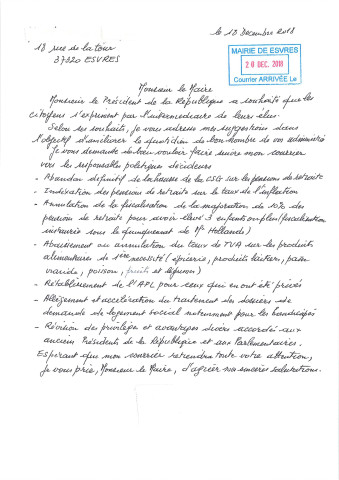 le 18 Decembre 2018
18 rue de la tour
37320 ESVRES
MAIRIE DE ESVRES
20 DEC. 2018
Courrier ARRIVÉE Le
Monsieur le Maire
Monsieur le Président de la République a souhaité que les
citoyens s'expriment par l'intermédiaire de leurs élus.
Selon les souhaits, je vous adresse mes suggestions dans
l'objectif d'améliorer le quotidien de bon nombre de vos administrés
Je vous demande de bien vouloir faire suivre mon courrier
vers les responsables politiques décideurs
- Abandon définitif de la hausse de la CSG sur les pensions de retraite
- Indexation des pensions de retraite sur le taux de l'inflation
- Annulation de la fiscalisation de la majoration de 10% des
pensions de retraite pour avoir élevé 3 enfants ou plus (fiscalisation
instaurée sous le quinquennat de Mr Hollande)
- Abaissement ou annulation du taux de TVA sur les produits
alimentaires de 1ère nécessité (épicerie, produits laitiers, pain
viande, poisson, fruits et légumes)
- Rétablissement de l'APL pour ceux qui en ont été privés
- Allègement et accélération du traitement des dossiers de
demande de logement social notamment pour les handicapés
- Révision des privilèges et avantages divers accordés aux
anciens Présidents de la République et aux Parlementaires.
Espérant que mon courrier retiendra toute votre attention,
je vous prie, Monsieur le Maire, d'agréer mes sincères salutations.